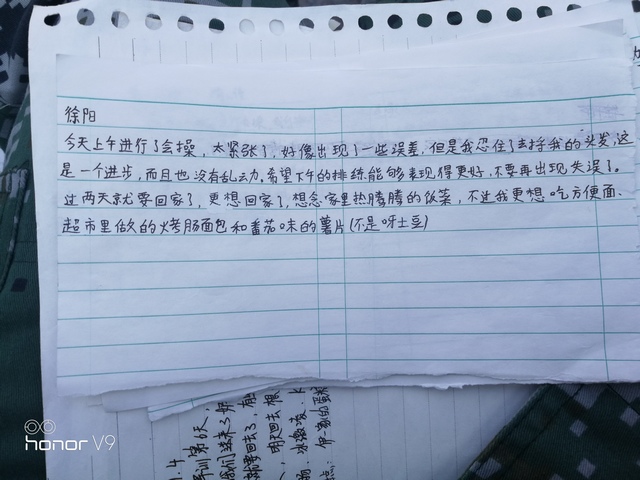 徐阳
今天上午进行了会操，太紧张了，好像出现了一些误差，但是我忍住了去捋我的头发，这
是一个进步，而且也没有乱动，希望下午的排练能够表现得更好，不要再出现失误了。
过两天就要回家了，更想回家了，想念家里热腾腾的饭菜，不过我更想吃方便面、
超市里做的烤肠面包和番茄味的薯片(不是呀土豆)
honor V9